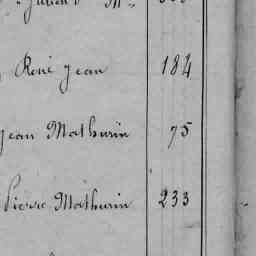 René Jean 184
Jean Mathurin 75
Pierre Mathurin 233